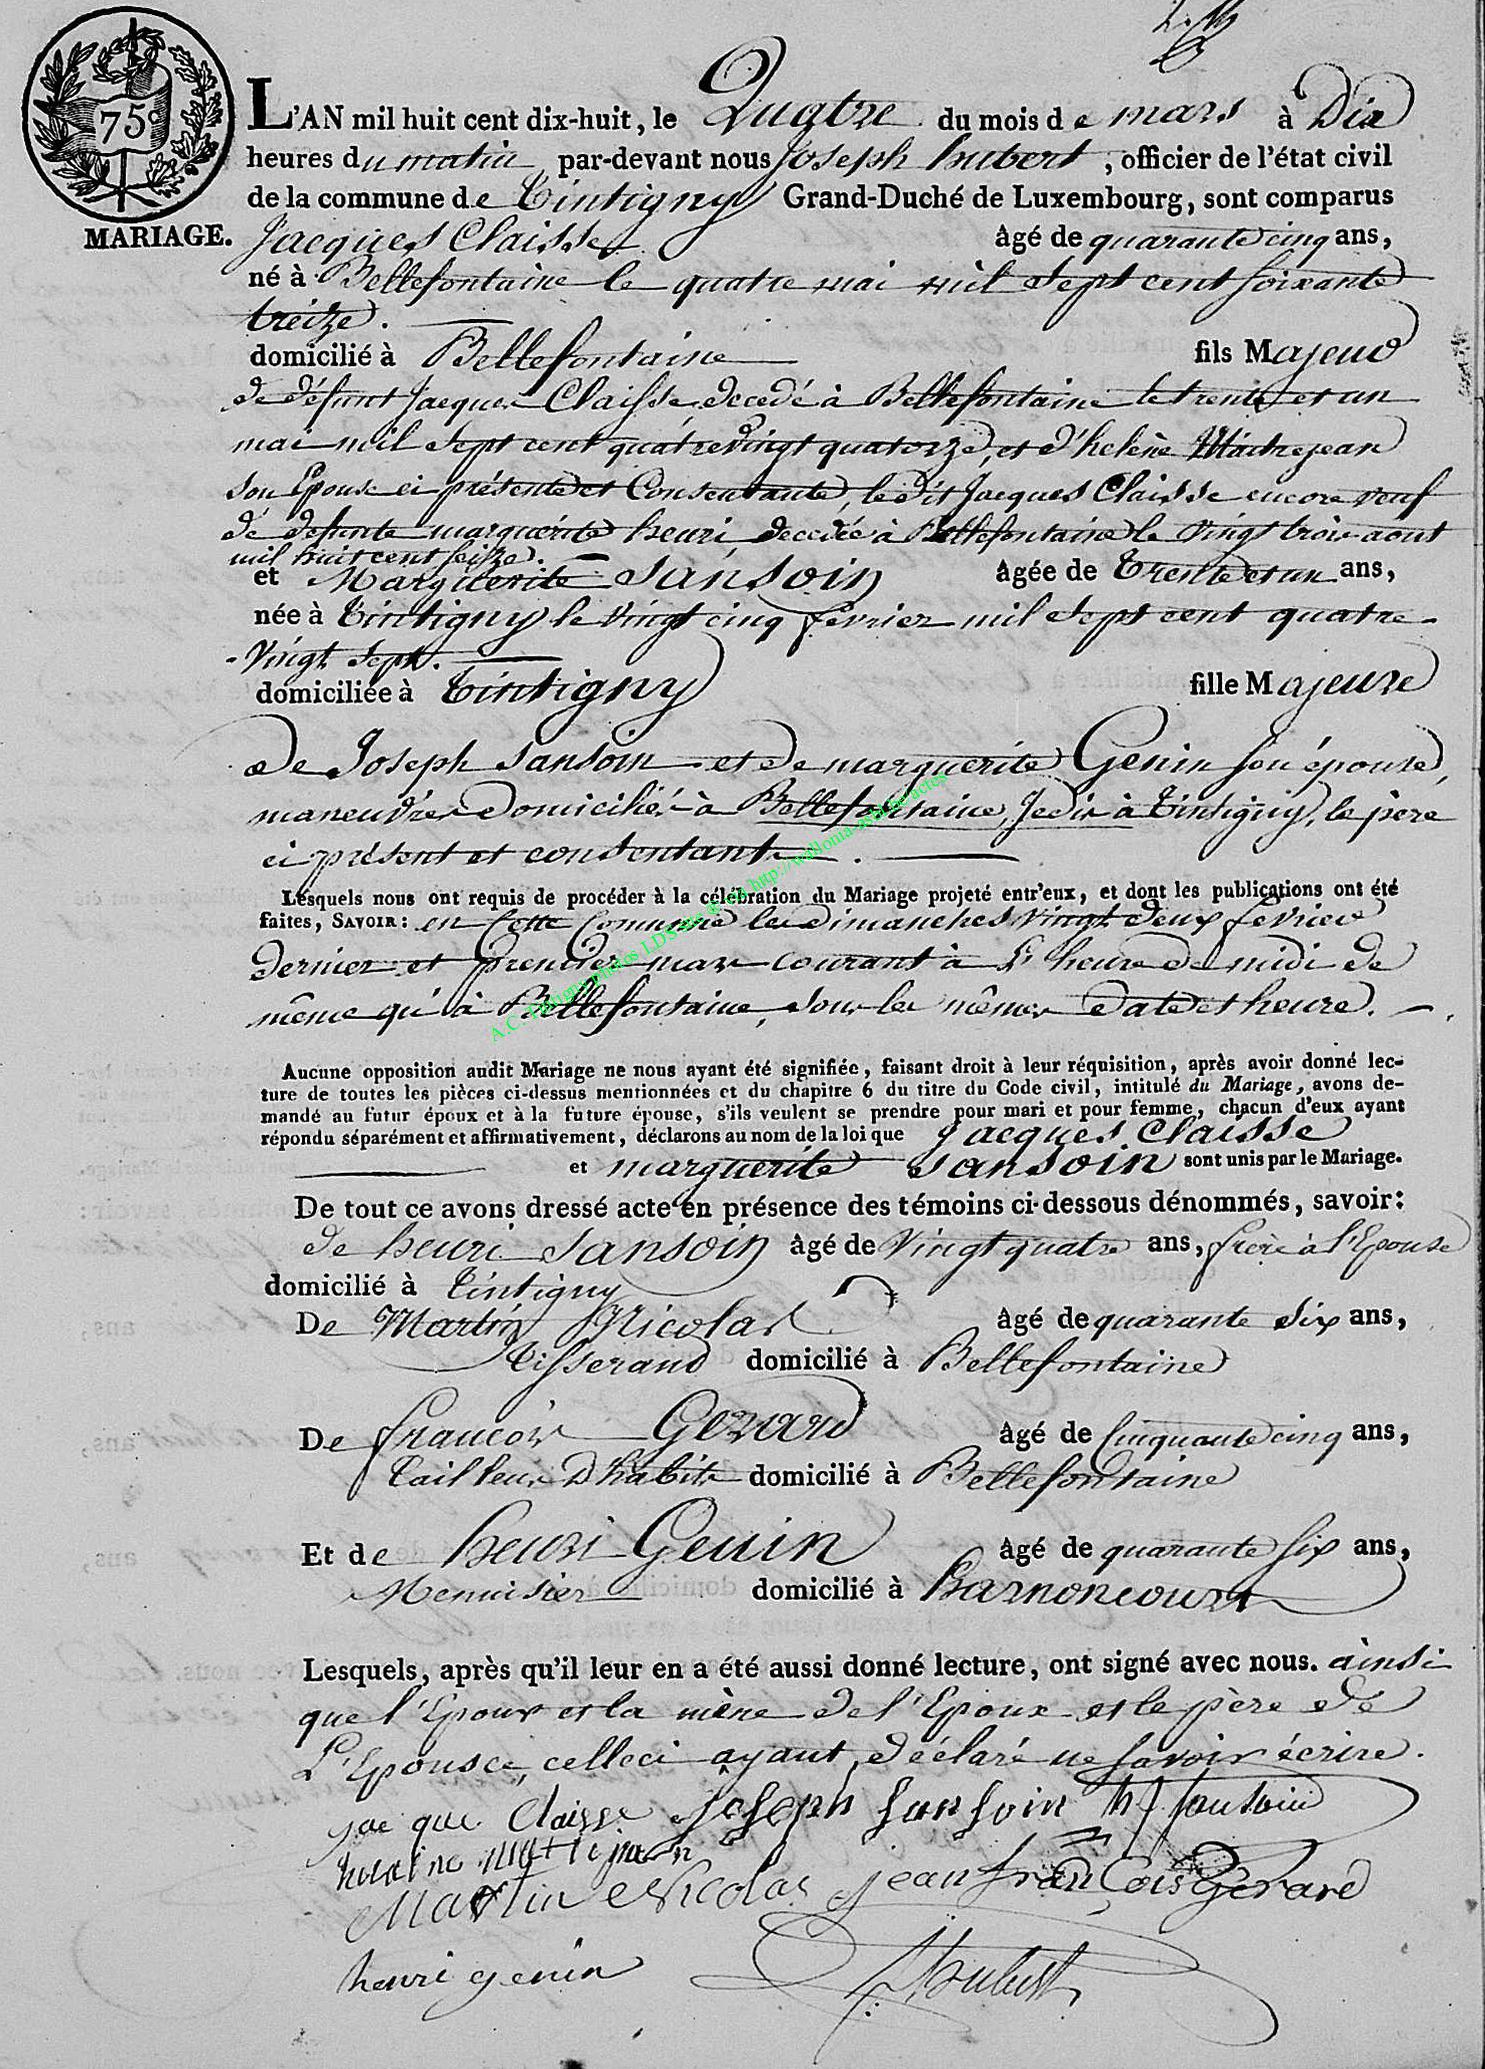 75c
MARIAGE.
L'AN mil huit cent dix-huit, le Quatre du mois de mars à Dix
heures du matin, par-devant nous Joseph hubert, officier de l'état civil
de la commune de Tintigny Grand-Duché de Luxembourg, sont comparus
Jacques Claisse âgé de quarante cinq ans,
né à Bellefontaine le quatre mai mil sept cent soixante
treize.
domicilié à Bellefontaine fils Majeur
de défunt Jacques Claisse decedé à Bellefontaine le trente et un
mai mil sept cent quatrevingt quatorze, et d'helène Maitrejean
son Epouse ci présente et Consentante, ledit Jacques Claisse encore veuf
de defunte marguerite henri, decedée à Bellefontaine le vingt trois aout
mil huit cent seize.
et Marguerite Sansoin âgée de Trente et un ans,
née à Tintigny le vingt cinq fevrier mil sept cent quatre
-Vingt sept.
domiciliée à Tintigny fille Majeure
de Joseph Sansoin et de marguerite Genin son épouse,
maneuvres domiciliés à Bellefontaine, Je dis à Tintigny, le père
ci présent et consentant.
Lesquels nous ont requis de procéder à la célébration du Mariage projeté entr'eux, et dont les publications ont été
faites, SAVOIR: en Cette Commune les dimanches vingt deux fevrier
dernier et premier mars courant à L'heure de midi de
même qu'à Bellefontaine, sous les mêmes date et heure.
A.C. Tintigny photos LDS via http://wallonia-asbl.be/actes
Aucune opposition audit Mariage ne nous ayant été signifiée, faisant droit à leur réquisition, après avoir donné lec-
ture de toutes les pièces ci-dessus mentionnées et du chapitre 6 du titre du Code civil, intitulé du Mariage, avons de-
mandé au futur époux et à la future épouse, s'ils veulent se prendre pour mari et pour femme, chacun d'eux ayant
répondu séparément et affirmativement, déclarons au nom de la loi que Jacques Claisse
et marguerite Sansoin sont unis par le Mariage.
De tout ce avons dressé acte en présence des témoins ci-dessous dénommés, savoir:
de henri Sansoin âgé de Vingt quatre ans, frère à l'Epouse
domicilié à Tintigny
De Martin Nicolas âgé de quarante six ans,
Tisserand domicilié à Bellefontaine
De francois Gerard âgé de Cinquante cinq ans,
Tailleur D'habits domicilié à Bellefontaine
Et de henri Genin âgé de quarante six ans,
Menuisier domicilié à harnoncourt
Lesquels, après qu'il leur en a été aussi donné lecture, ont signé avec nous. ainsi
que l'Epoux et la mère de l'Epoux et le père de
L'Epouse, celleci ayant déclaré ne savoir écrire.
jac que Claisse Joseph Sansoin hj Sansoin
Martin Nicolas jean françois Gerard
henri genin Hubert